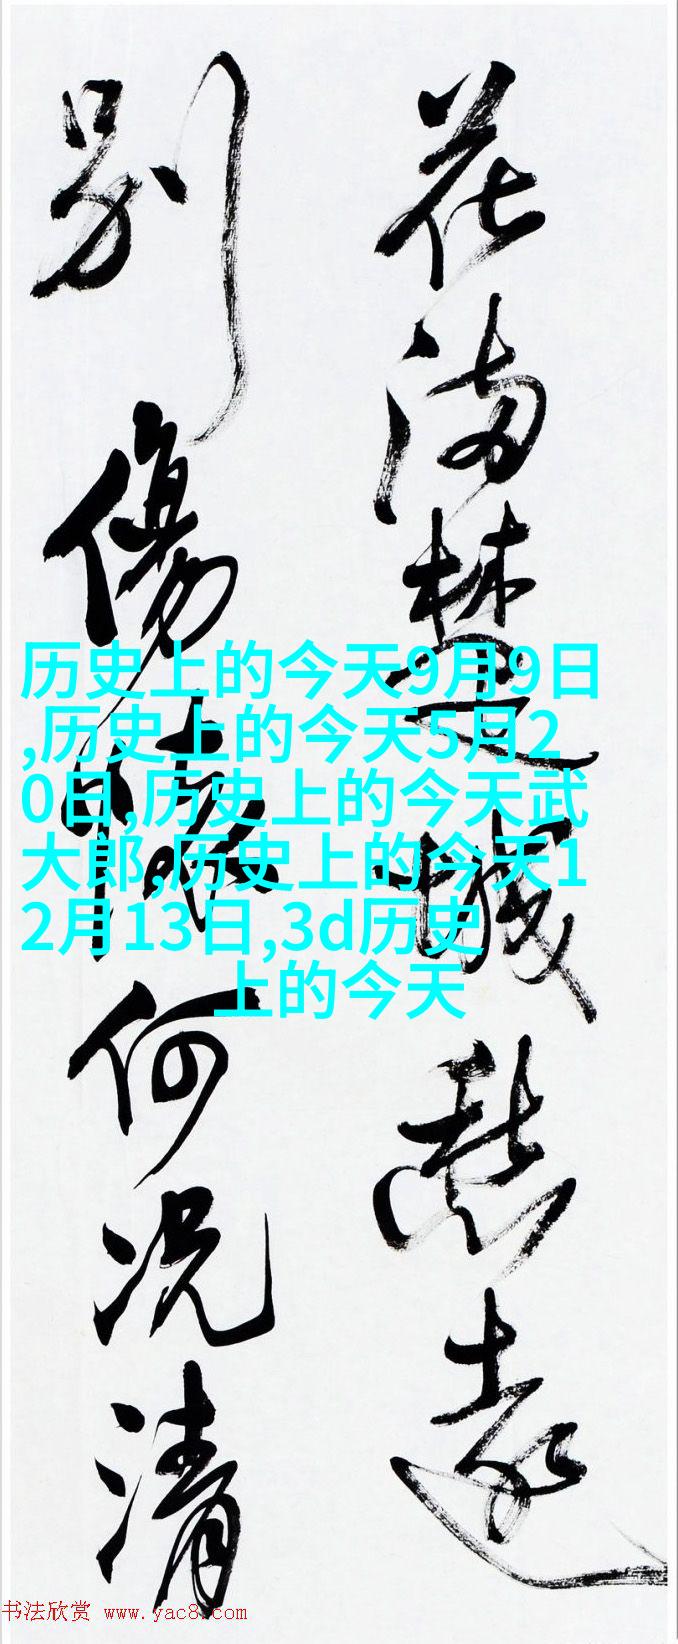 花滿楚城愁遠
別傷懷何況清
历史上的今天9月9日
,历史上的今天5月2
0日,历史上的今天武
大郎,历史上的今天1
2月13日,3d历史
上的今天
书法欣赏 www.yac8.com